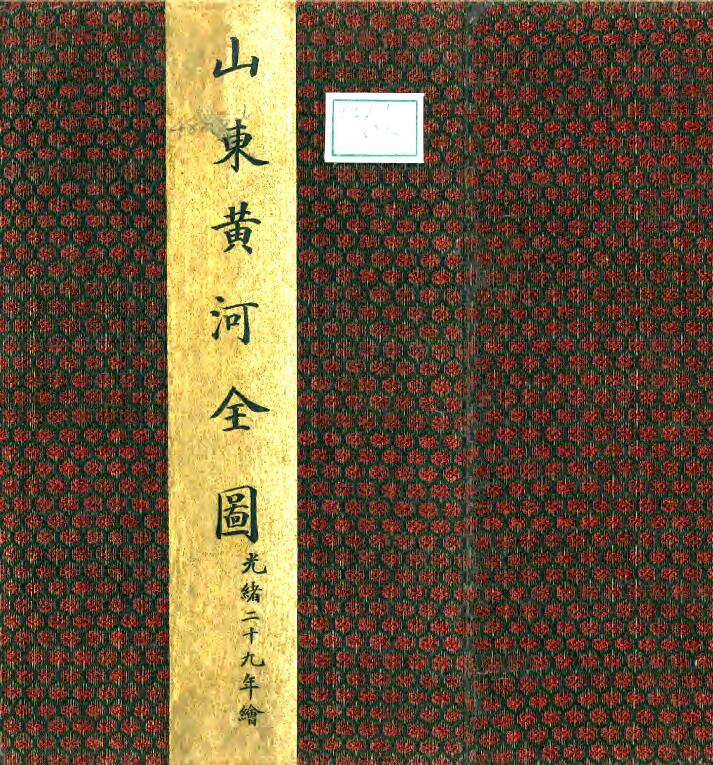 山東黄河全圖
光緒二十九年繪